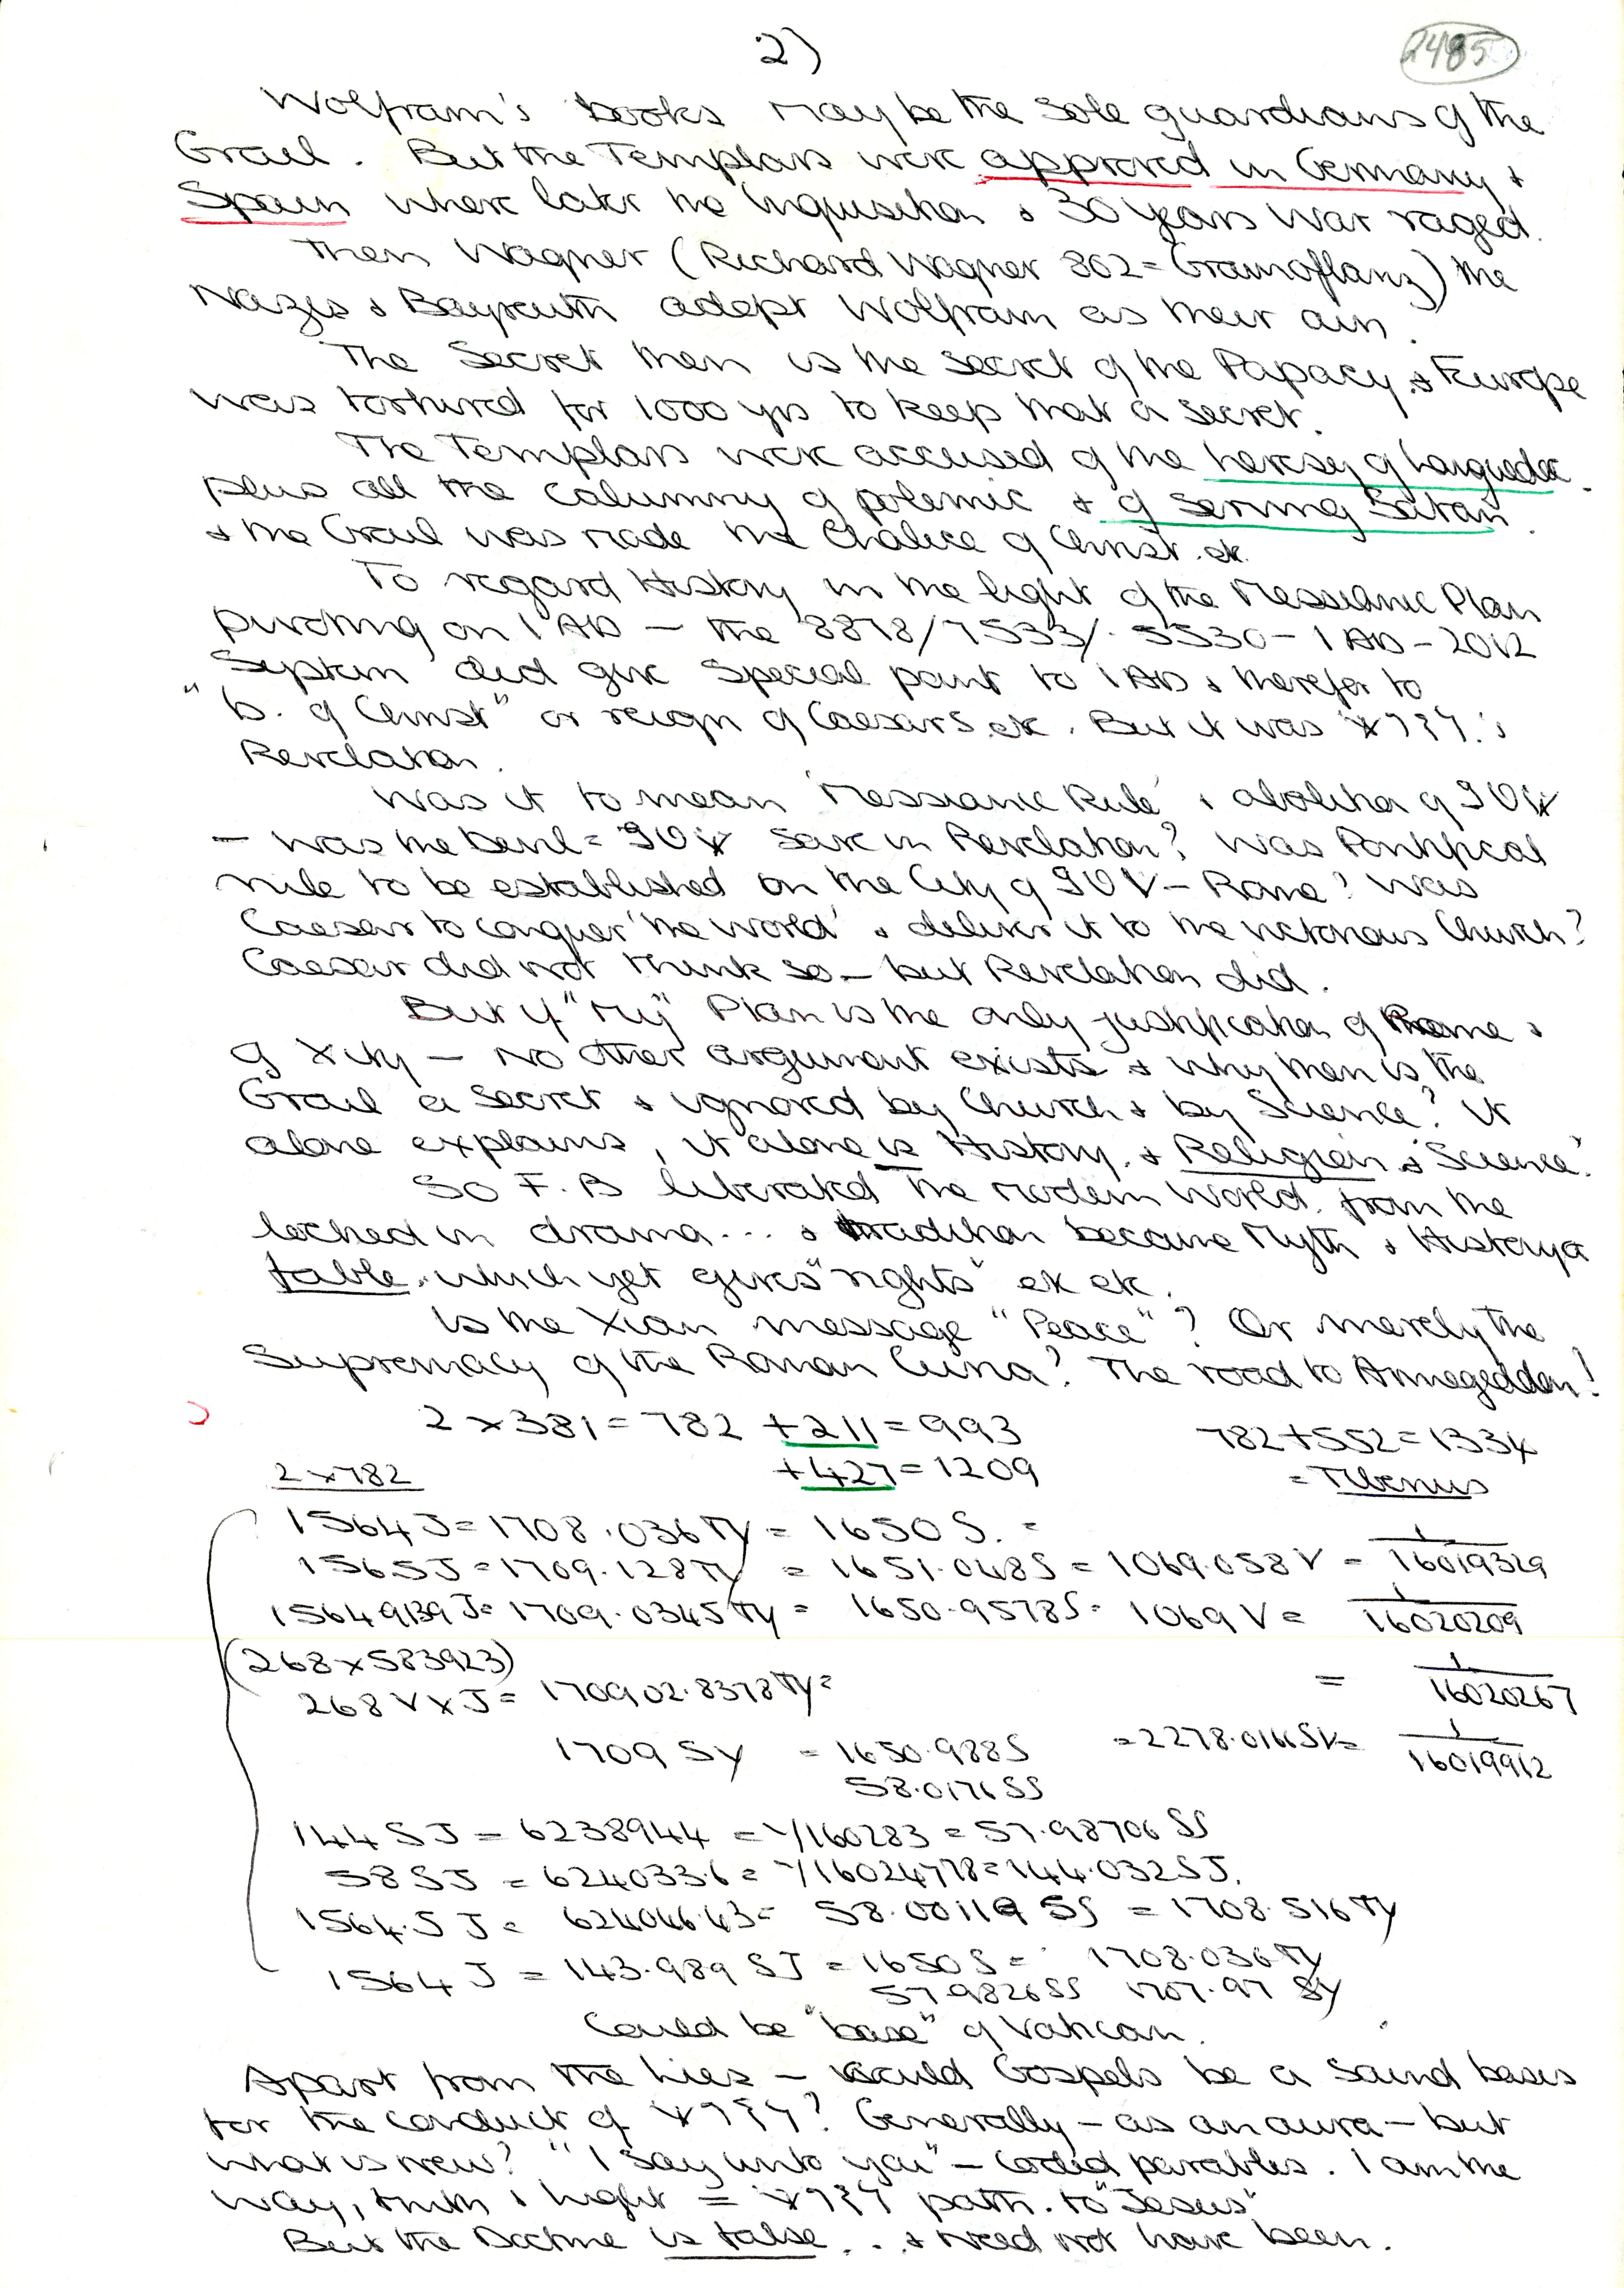 2)
2485
Wolfram's books may be the sole guardians of the
Grail. But the Templars were approved in Germany &
Spain where later the Inquisition & 30 years War raged.
Then Wagner (Richard Wagner 862 = Gramoflanz) the
Nazis & Bayreuth adopt Wolfram as their own.
The Secret then is the secret of the Papacy & Europe
was tortured for 1000 yrs to keep that a secret.
The Templars were accused of the heresy of Languedoc
plus all the calumny of polemic & of serving Satan.
& the Grail was made the Chalice of Christ. etc
To regard History in the light of the Messianic Plan
pivoting on 1 AD — the 8878/7533/ 5530 – 1 AD – 2012
System did give special point to 1 AD & therefor to
"b. of Christ" or reign of Caesars etc. But it was 's
Revelation.
Was it to mean 'Messianic Rule' & abolition of
— was the Devil = save in Revelation? Was Pontifical
rule to be established on the City of – Rome? Was
Caesar to conquer 'the world' & deliver it to the victorious Church?
Caesar did not think so – but Revelation did.
But if "My" Plan is the only justification of Rome &
of Xity — No other argument exists & why then is the
Grail a secret & ignored by Church & by Science? It
alone explains, it alone is History & Religion & Science.
So F. B liberated the modern world from the
locked in drama... & tradition became Myth & History a
fable, which yet gives "rights" etc etc.
Is the Xian message "Peace"? Or merely the
Supremacy of the Roman Curia? The road to Armegeddon!
2 x 381 = 782 + 211 = 993
782 + 552 = 1334
2 x 782
+ 427 = 1209
= Tiberius
1564 J = 1708.036 Ty = 1650 S. =
1565 J = 1709.128 Ty = 1651.048 S = 1069.058 V = 1/16019329
1564 9139 J = 1709.0345 Ty = 1650.9578 S = 1069 V = 1/16020209
(268 x 583923)
268 V x J = 170902.8378 Ty = = 1/16020267
1709 Sy = 1650.988 S = 2278.0166 SV = 1/16019912
58.0176 SS
144 SJ = 6238944 = Y/160283 = 57.98706 SS
58 SJ = 6240336 = Y/16024778 = 144.032 SJ.
1564.5 J = 624046.43 = 58.00119 SS = 1708.516 Ty
1564 J = 143.989 SJ = 1650 S = 1708.036 Ty
57.9826 SS 1707.97 Sy
Could be "base" of Vatican.
Apart from the lies – would Gospels be a sound basis
for the conduct of ? Generally – as an aura – but
what is new? "I say unto you" – coded parables. I am the
way, truth & light = path to "Jesus"
But the Doctrine is false... & need not have been.